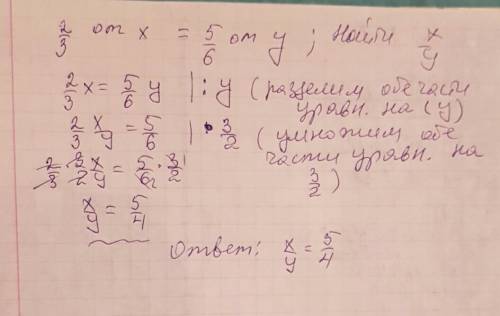 2/3 от x = 5/6 от y ; Найти x/y
2/3 x = 5/6 y | : y (разделим обе части уравн. на (y)
2/3 x/y = 5/6 | · 3/2 (умножим обе части уравн. на 3/2)
2/3 · 3/2 x/y = 5/6 · 3/2
x/y = 5/4
Ответ: x/y = 5/4